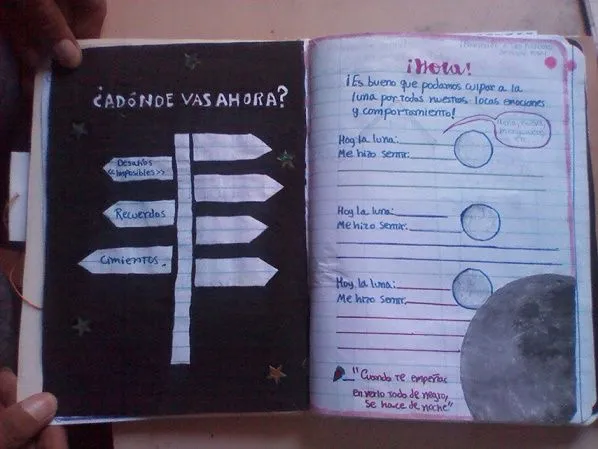 ¿ADÓNDE VAS AHORA?
Desafíos
<<Imposibles>>
Recuerdos
Cimientos.
¡Hola!
¡Es bueno que podamos culpar a la
luna por todas nuestras locas emociones
y comportamiento!
Hoy la luna:
Me hizo sentir:
Hoy la luna:
Me hizo sentir:
Hoy la luna:
Me hizo sentir:
"Cuando te empeñas
en verlo todo de negro,
se hace de noche"